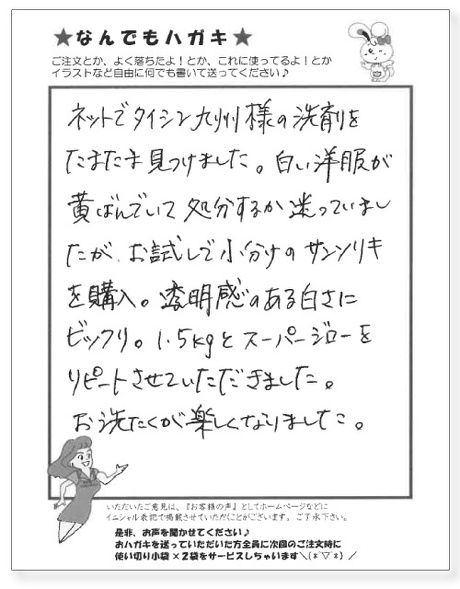 ★なんでもハガキ★
ご注文とか、よく落ちたよ！とか、これに使ってるよ！とか
イラストなど自由に何でも書いて送ってください♪
ネットでタイシン九州様の洗剤を
たまたま見つけました。白い洋服が
黄ばんでいて処分するか迷っていまし
たが、お試しで小分けのサンソリキ
を購入。透明感のある白さに
ビックリ。1.5kgとスーパージローを
リピートさせていただきました。
お洗たくが楽しくなりました。
いただいたご意見は、『お客様の声』としてホームページなどに
イニシャル表記で掲載させていただくことがございます。ご了承下さい。
是非、お声を聞かせてください♪
おハガキを送っていただいた方全員に次回のご注文時に
使い切り小袋×2袋をサービスしちゃいます＼(*´▽`*)／